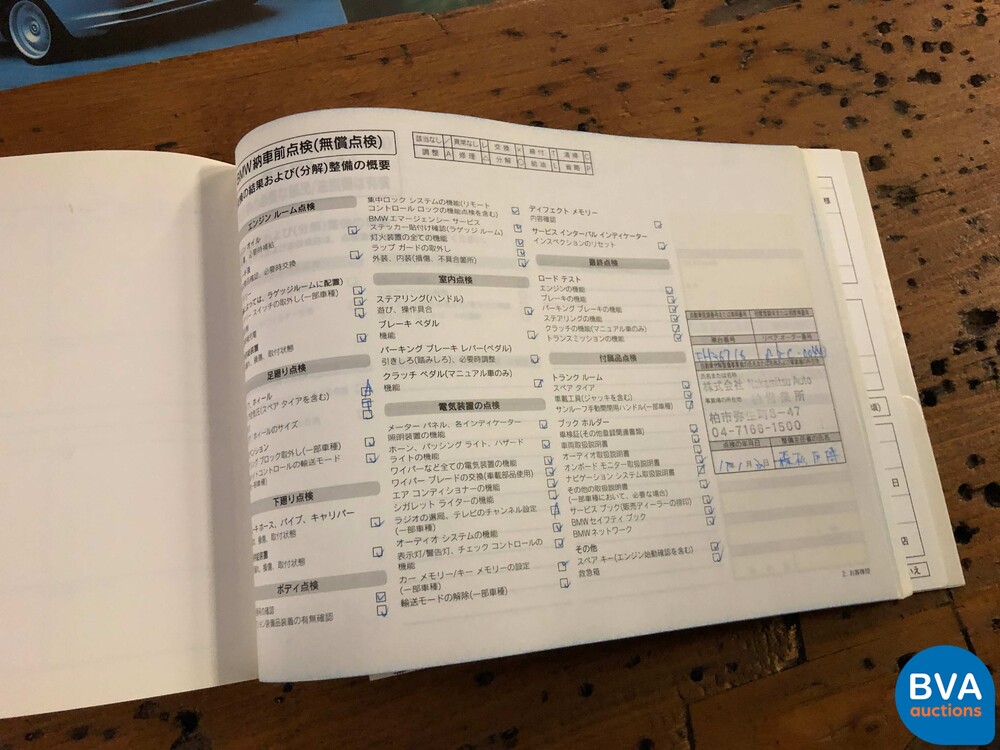 BMW 納車前点検(無償点検)
の結果および(分解)整備の概要
該当なし / 異常なし レ 交換 × 締付 T 清掃 C
調整 A 修理 △ 分解 O 給油 L 省略 P
エンジン ルーム点検
オイル
必要時補給
必要時交換
ラゲッジルームに配置)
スイッチの取外し(一部車種)
取付状態
足廻り点検
ホイール
(スペア タイアを含む)
ホイールのサイズ
ブロック取外し(一部車種)
コントロールの輸送モード
下廻り点検
ホース、パイプ、キャリパー
損傷、取付状態
損傷、取付状態
ボディ点検
の確認
装備品装着の有無確認
集中ロック システムの機能(リモート
コントロール ロックの機能点検を含む)
BMWエマージェンシー サービス
ステッカー貼付け確認(ラゲッジ ルーム)
灯火装置の全ての機能
ラップ ガードの取外し
外装、内装(損傷、不具合箇所)
室内点検
ステアリング(ハンドル)
遊び、操作具合
ブレーキ ペダル
機能
パーキング ブレーキ レバー(ペダル)
引きしろ(踏みしろ)、必要時調整
クラッチ ペダル(マニュアル車のみ)
機能
電気装置の点検
メーター パネル、各インディケーター
照明装置の機能
ホーン、パッシング ライト、ハザード
ライトの機能
ワイパーなど全ての電気装置の機能
ワイパー ブレードの交換(車載部品使用)
エア コンディショナーの機能
シガレット ライターの機能
ラジオの選局、テレビのチャンネル設定
(一部車種)
オーディオ システムの機能
表示灯/警告灯、チェック コントロールの
機能
カー メモリー/キー メモリーの設定
(一部車種)
輸送モードの解除(一部車種)
ディフェクト メモリー
内容確認
サービス インターバル インディケイター
インスペクションのリセット
最終点検
ロード テスト
エンジンの機能
ブレーキの機能
パーキング ブレーキの機能
ステアリングの機能
クラッチの機能(マニュアル車のみ)
トランスミッションの機能
付属品点検
トランク ルーム
スペア タイア
車載工具(ジャッキを含む)
サンルーフ手動開閉用ハンドル(一部車種)
ブック ホルダー
車検証(その他登録関連書類)
車両取扱説明書
オーディオ取扱説明書
オンボード モニター取扱説明書
ナビゲーション システム取扱説明書
その他の取扱説明書
(一部車種において、必要な場合)
サービス ブック(販売ディーラーの捺印)
BMWセイフティ ブック
BMWネットワーク
その他
スペア キー(エンジン始動確認を含む)
救急箱
車台番号
リペア オーダー番号
株式会社 Nakamitsu Auto
営業所
柏市弥生町3-47
04-7166-1500
点検の年月日
整備主任者の氏名
2. お客様控
様
日
店
BVA
auctions